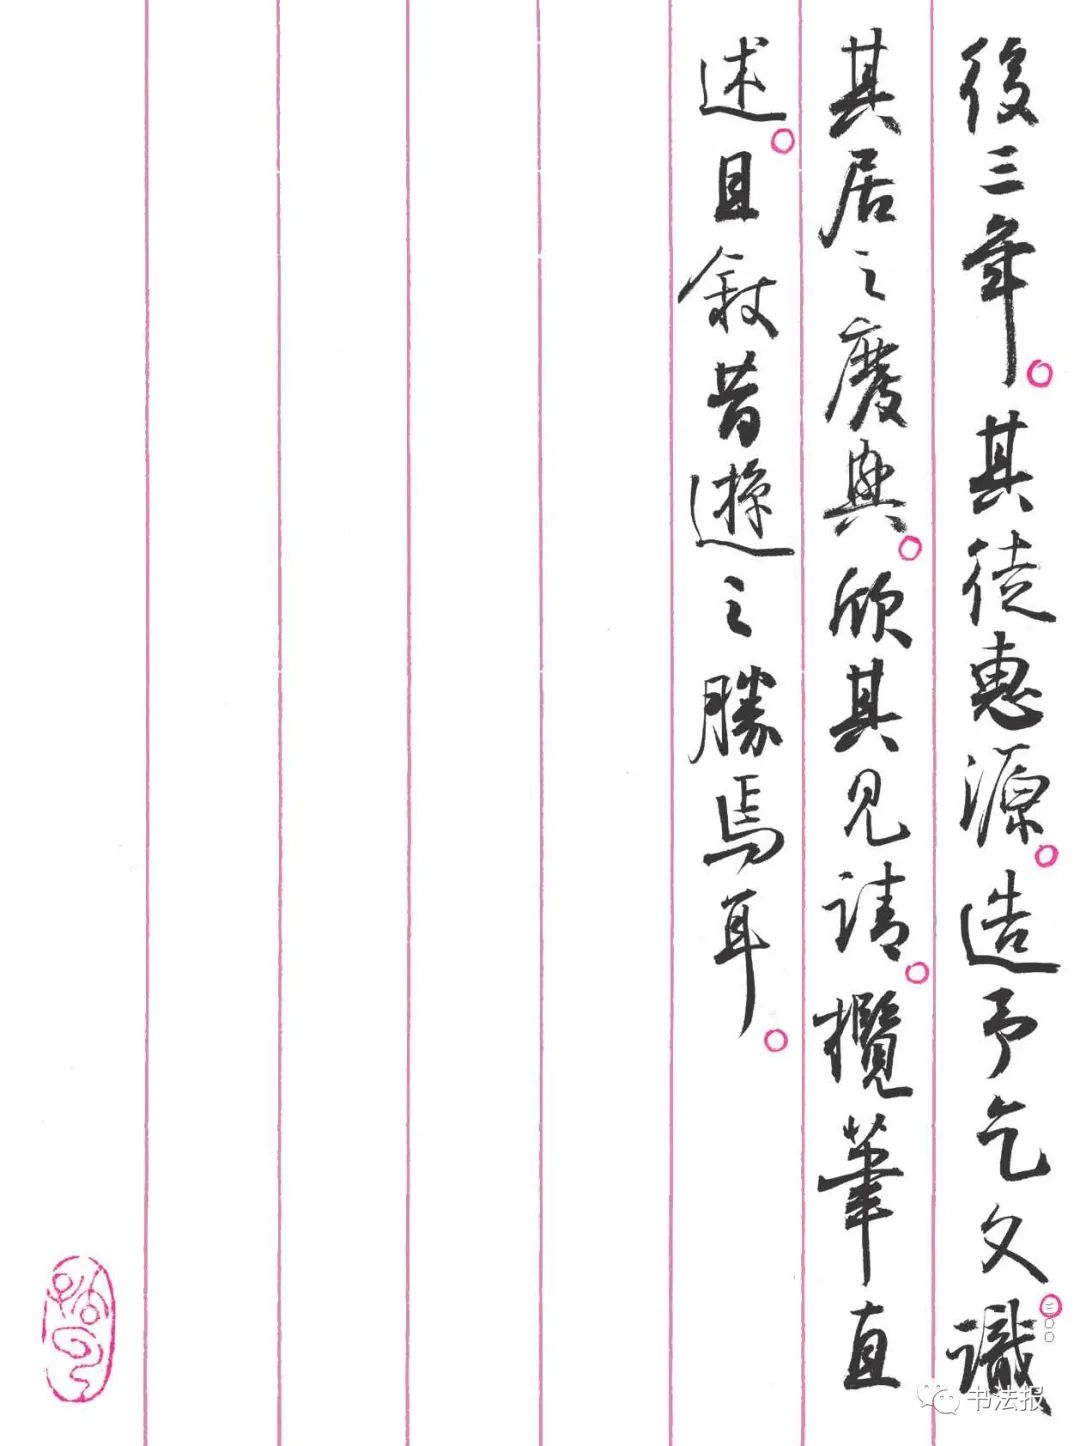 後三年。其徒惠源。造予乞文。識
其居之廢興。欣其見請。攬筆直
述。且叙昔遊之勝焉耳。
三〇〇
书法报